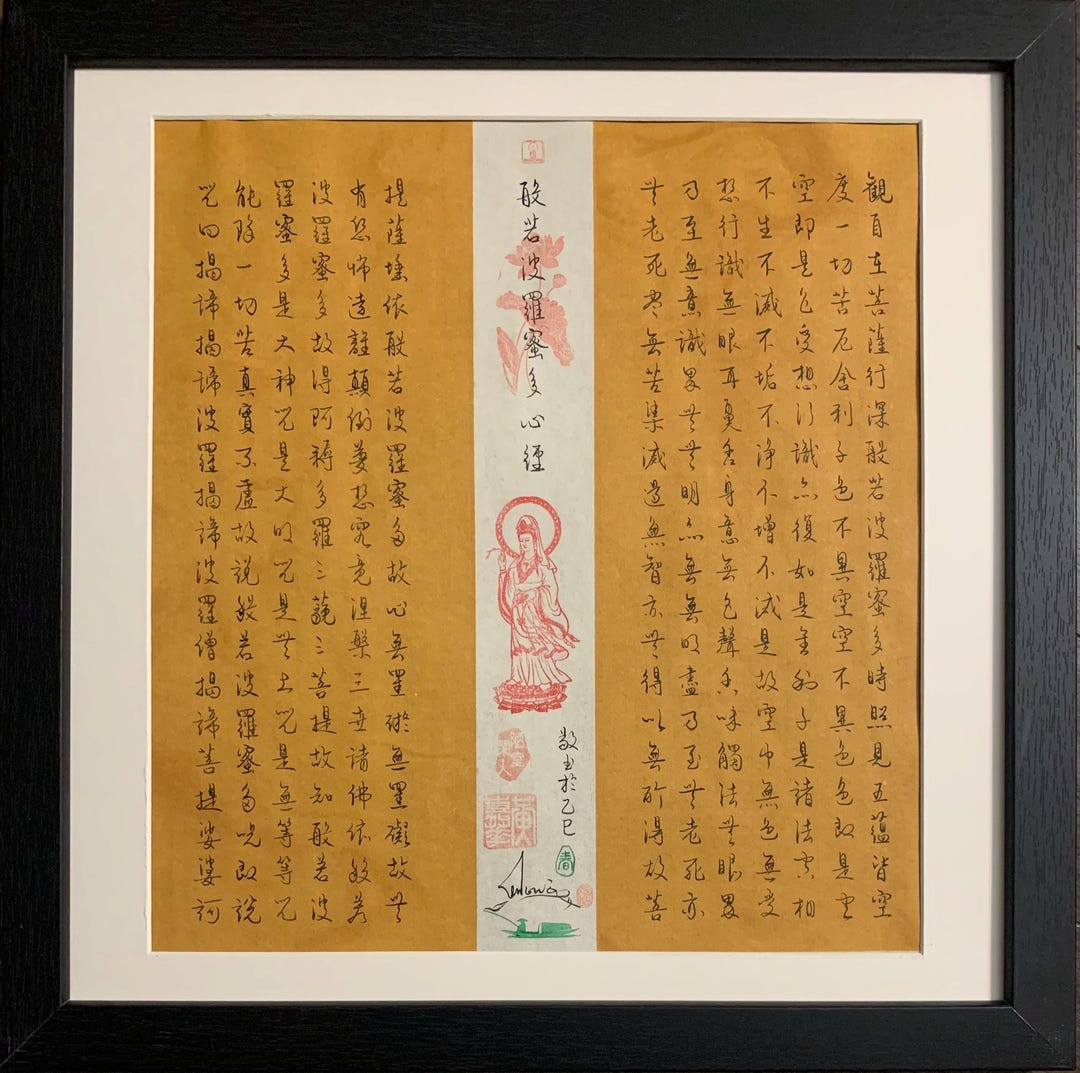 觀自在菩薩行深般若波羅蜜多時照見五蘊皆空
度一切苦厄舍利子色不異空空不異色色即是空
空即是色受想行識亦復如是舍利子是諸法空相
不生不滅不垢不淨不增不減是故空中無色無受
想行識無眼耳鼻舌身意無色聲香味觸法無眼界
乃至無意識界無無明亦無無明盡乃至無老死亦
無老死盡無苦集滅道無智亦無得以無所得故菩
般若波羅蜜多心經
敬書於乙巳
春
提薩埵依般若波羅蜜多故心無罣礙無罣礙故無
有恐怖遠離顛倒夢想究竟涅槃三世諸佛依般若
波羅蜜多故得阿耨多羅三藐三菩提故知般若波
羅蜜多是大神咒是大明咒是無上咒是無等等咒
能除一切苦真實不虛故說般若波羅蜜多咒即說
咒曰揭諦揭諦波羅揭諦波羅僧揭諦菩提娑婆訶